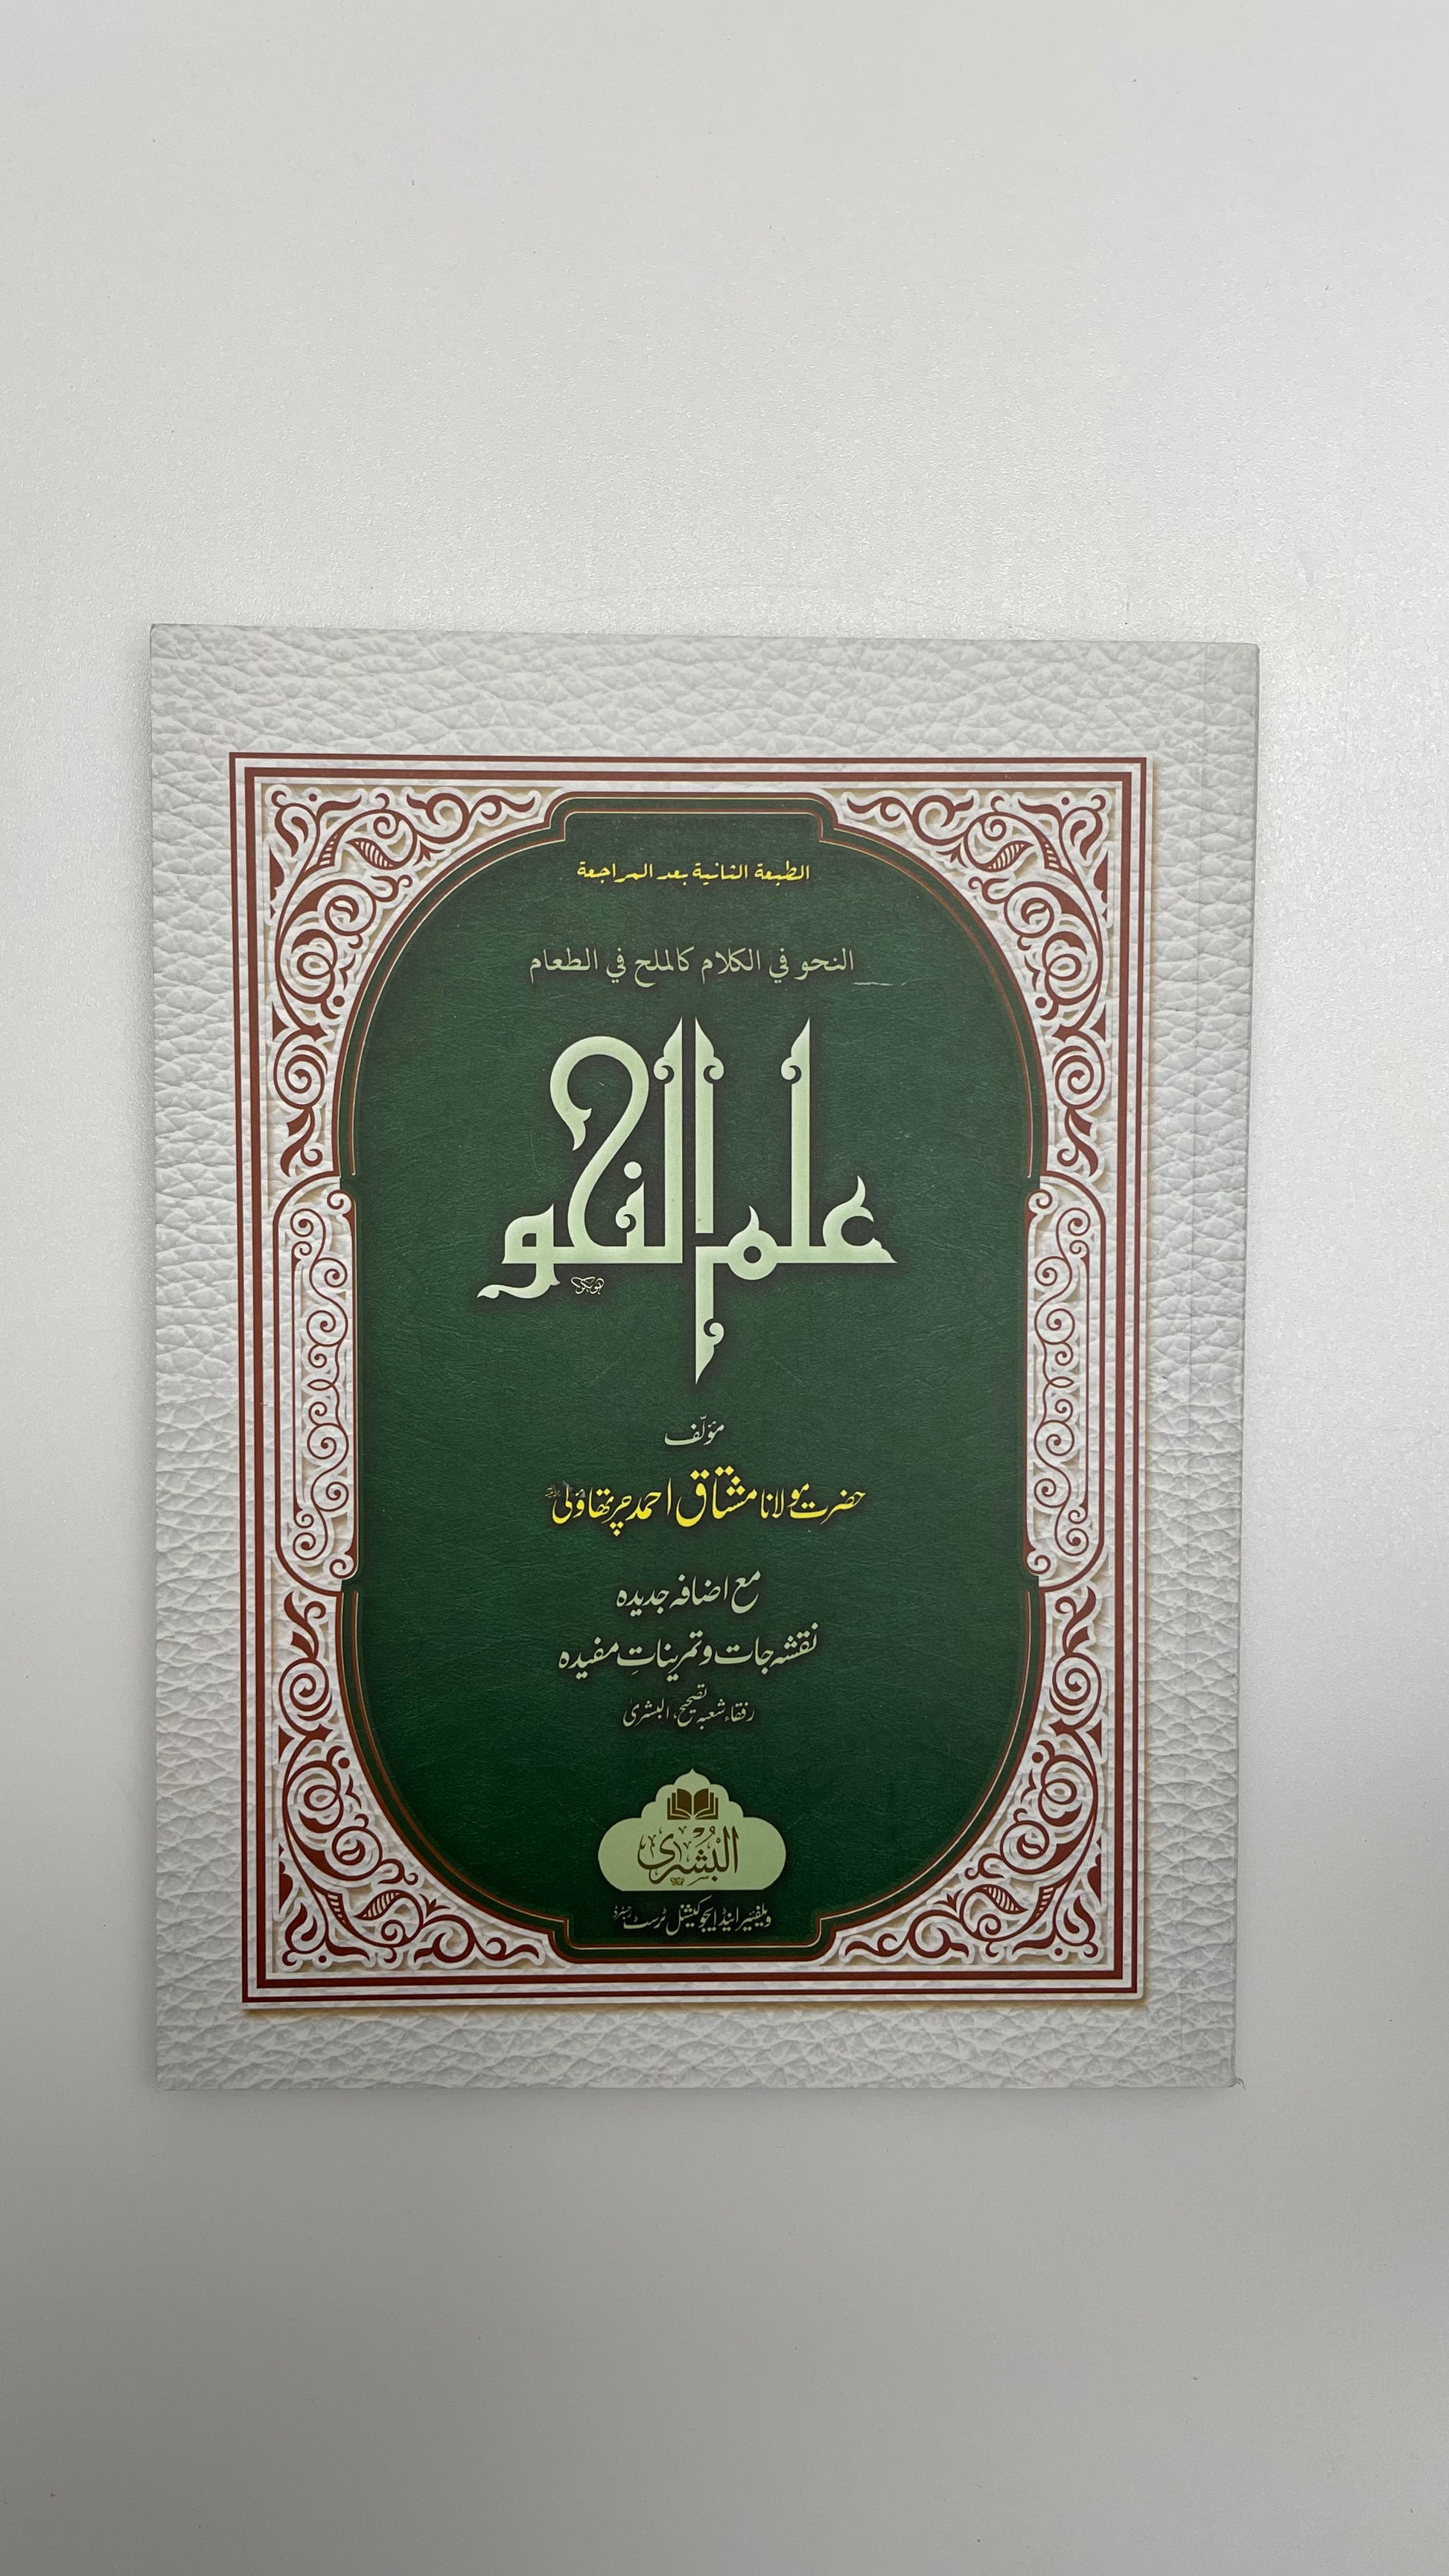 الطبعة الثانية بعد المراجعة
النحو في الكلام كالملح في الطعام
علم النحو
مؤلّف
حضرت مولانا مشتاق احمد چرتھاؤلی
مع اضافہ جدیدہ
نقشہ جات و تمریناتِ مفیدہ
رفقاء شعبہ تصحیح، البشریٰ
البُشرى
ویلفیئر اینڈ ایجوکیشنل ٹرسٹ